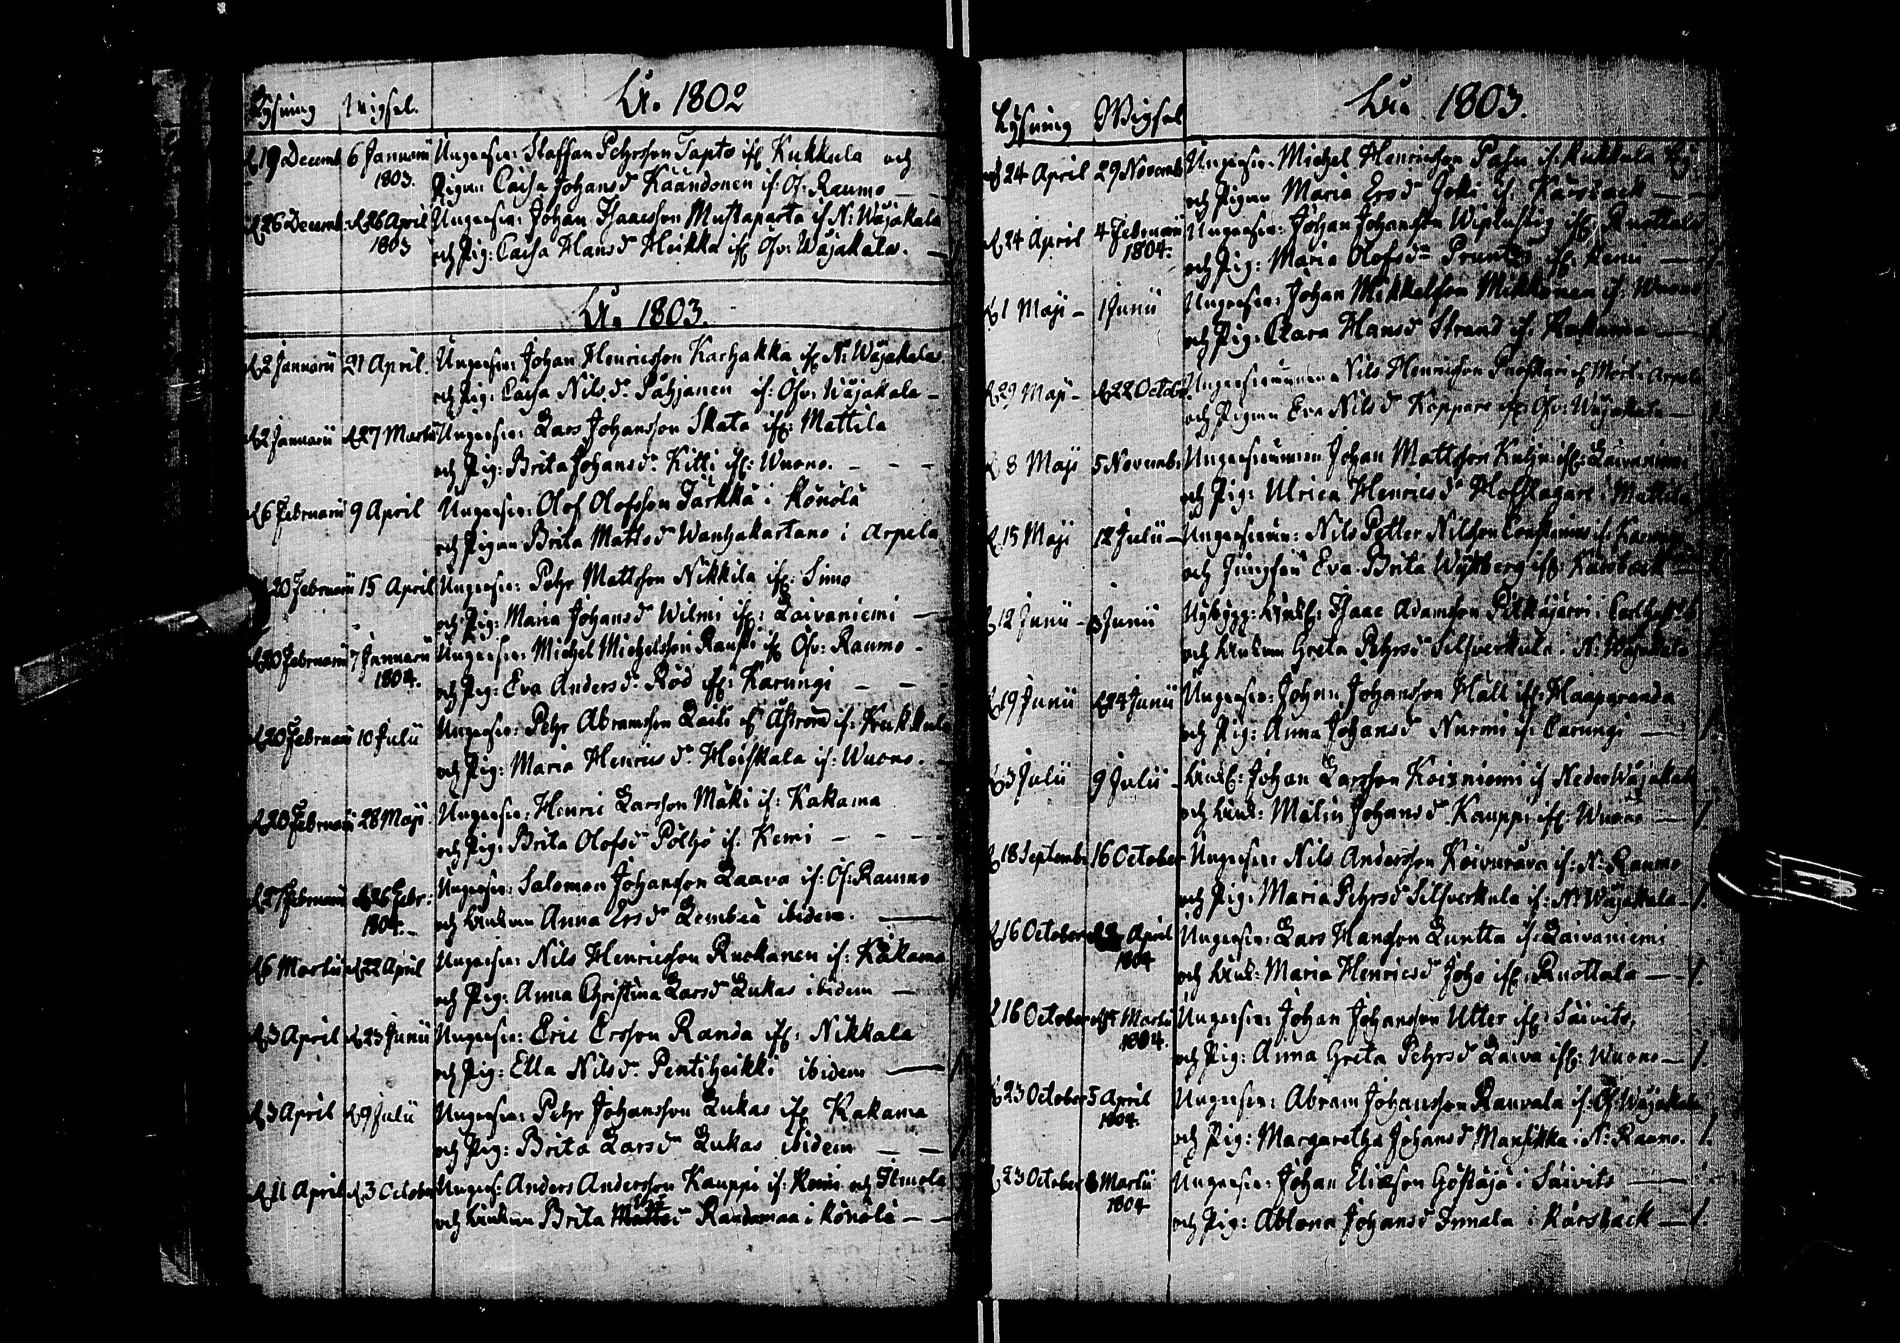 Lysning Wigsel. Åhr 1802
d 19 Decemb 6 Januarii Ungersv: Staffan Pehrsson Tapto ifr: Kukkula och
1803. Pigan Caisa Johansdr Käändonen if: Öf: Raumo
d 26 Decemb: d 26 April Ungersv: Johan Isaacsson Mustaparta if N: Wojakala
1803 och Pig: Caisa Hansdr Heikka ifr Öfv: Wojakala.
Åhr 1803.
d 2 Januarii 21 April. Ungersv: Johan Henricsson Karhakka ifr N: Wojakala
och Pig: Caisa Nilsdr Pähjanen if: Öfv: Wojakala
d 2 Januarii d 27 Martii Ungersv: Lars Johansson Skata ifr: Mattila
och Pig: Brita Johansdr: Kitti ifr: Wuono.
d 6 Februarii 9 April Ungersv: Olof Olofsson Tarkka i Könölä
och Pigan Brita Mattsdr Wanhakartano i Arpela
d 20 Februarii 15 April Ungersv: Pehr Mattsson Nikkila ifr: Simo
och Pig: Maria Johansdr Wilmi ifr: Laivaniemi
d 20 Februarii 7 Januarii Ungersv: Michel Michelsson Rauski ifr Öfv: Raumo
1804. och Pig: Eva Andersdr Röd ifr: Karungi
d 20 Februarii 10 Julii Ungersv: Pehr Abramsson if: Kukkula
och Pig: Maria Henricsdr Heiskala if: Wuono.
d 20 Februarii 28 Maji Ungersv: Henric Larsson Mäki if: Kakama
och Pig: Brita Olofsdr Pöltjö if: Kemi
d 27 Februarii d 26 Febr: Ungersv: Salomon Johansson Laava if: Öf: Raumo
1804. och Enkan Anna Ersdr Lembeä ibidem.
d 6 Martii d 22 April Ungersv: Nils Henricsson Ruokanen if: Kakama
och Pig: Anna Christina Larsdr Lukas ibidem
d 3 April d 23 Junii Ungersv: Eric Ersson Randa ifr: Nikkala
och Pig: Ella Nilsdr Pentiheikki ibidem
d 3 April d 9 Julii Ungersv: Pehr Johansson Lukas ifr Kakama
och Pig: Brita Larsdr Lukas ibidem
d 11 April d 3 October Ungers: Anders Andersson Kauppi if: Kemi och Ilmola
och Enkan Brita Randamaa i Könölä
Lysning Wigsel Åhr 1803.
d 24 April 29 Novemb Ungersv: Michel Henricsson Pasu if. Kukkula By
och Pigan Maria Ersdr Joki if: Karsbäck
d 24 April 4 Februarii Ungersv: Johan Johansson ifr: Ruottala
1804. och Pig: Maria Olofsdr ifr. Kemi
d 1 Maji 1 Junii Ungersv: Johan Mikkelsson Mikkonen if: Wuono
och Pig: Clara Hansdr Strand if. Kakama
d 29 Maji d 22 Octobr. Ungersvennen Nils Henricsson Arpela
och Pigan Eva Nilsdr Koppare ifr: Öfv: Wojakala
d 8 Maji 5 Novemb: Ungersvennen Johan Mattsson ifr: Laivaniemi
och Pig: Ulrica Henricsdr i Mattila
d 15 Maji 12 Julii Ungersven: Nils Petter Nilsson if: Karungi
och Jungfrun Eva Brita Wijkberg ifr: Karsbäck
d 12 Junii Junii Nybygg: Enkl: Isaac Adamsson Pitkäjärvi i
och Enkan Greta Pehrsdr Silfverkula i N: Wojakala
d 19 Junii d 24 Junii Ungersv: Johan Johansson Häll ifr: Haaparanda
och Pig: Anna Johansdr Nurmi if: Carungi
d 3 Julii 9 Julii Enkl: Johan Larsson Koiraniemi if Neder Wojakala
och Enk: Malin Johansdr Kauppi ifr: Wuono
d 18 Septembr 16 October Ungersv: Nils Andersson Koivuvara if: N: Raumo
och Pig: Maria Pehrsdr Silfverkula if: N: Wojakala
d 16 October April Ungersv: Lars Hansson Luntta if: Laivaniemi
1804 och Enk: Maria Henricsdr Joho ifr: Ruottala
d 16 October Martii Ungersv: Johan Johansson Utter ifr: Säivits,
1804. och Pig: Anna Greta Pehrsdr Laiva ifr: Wuono
d 23 October 5 April Ungersv: Abram Johansson Rauvala if: Öf: Wojakala
1804. och Pig: Margaretha Johansdr Mansikka i N: Raumo.
d 23 October Martii Ungersv: Johan Eliasson Göstäjä i Säivits
1804 och Pig: Ablona Johansdr Innala i Karsbäck